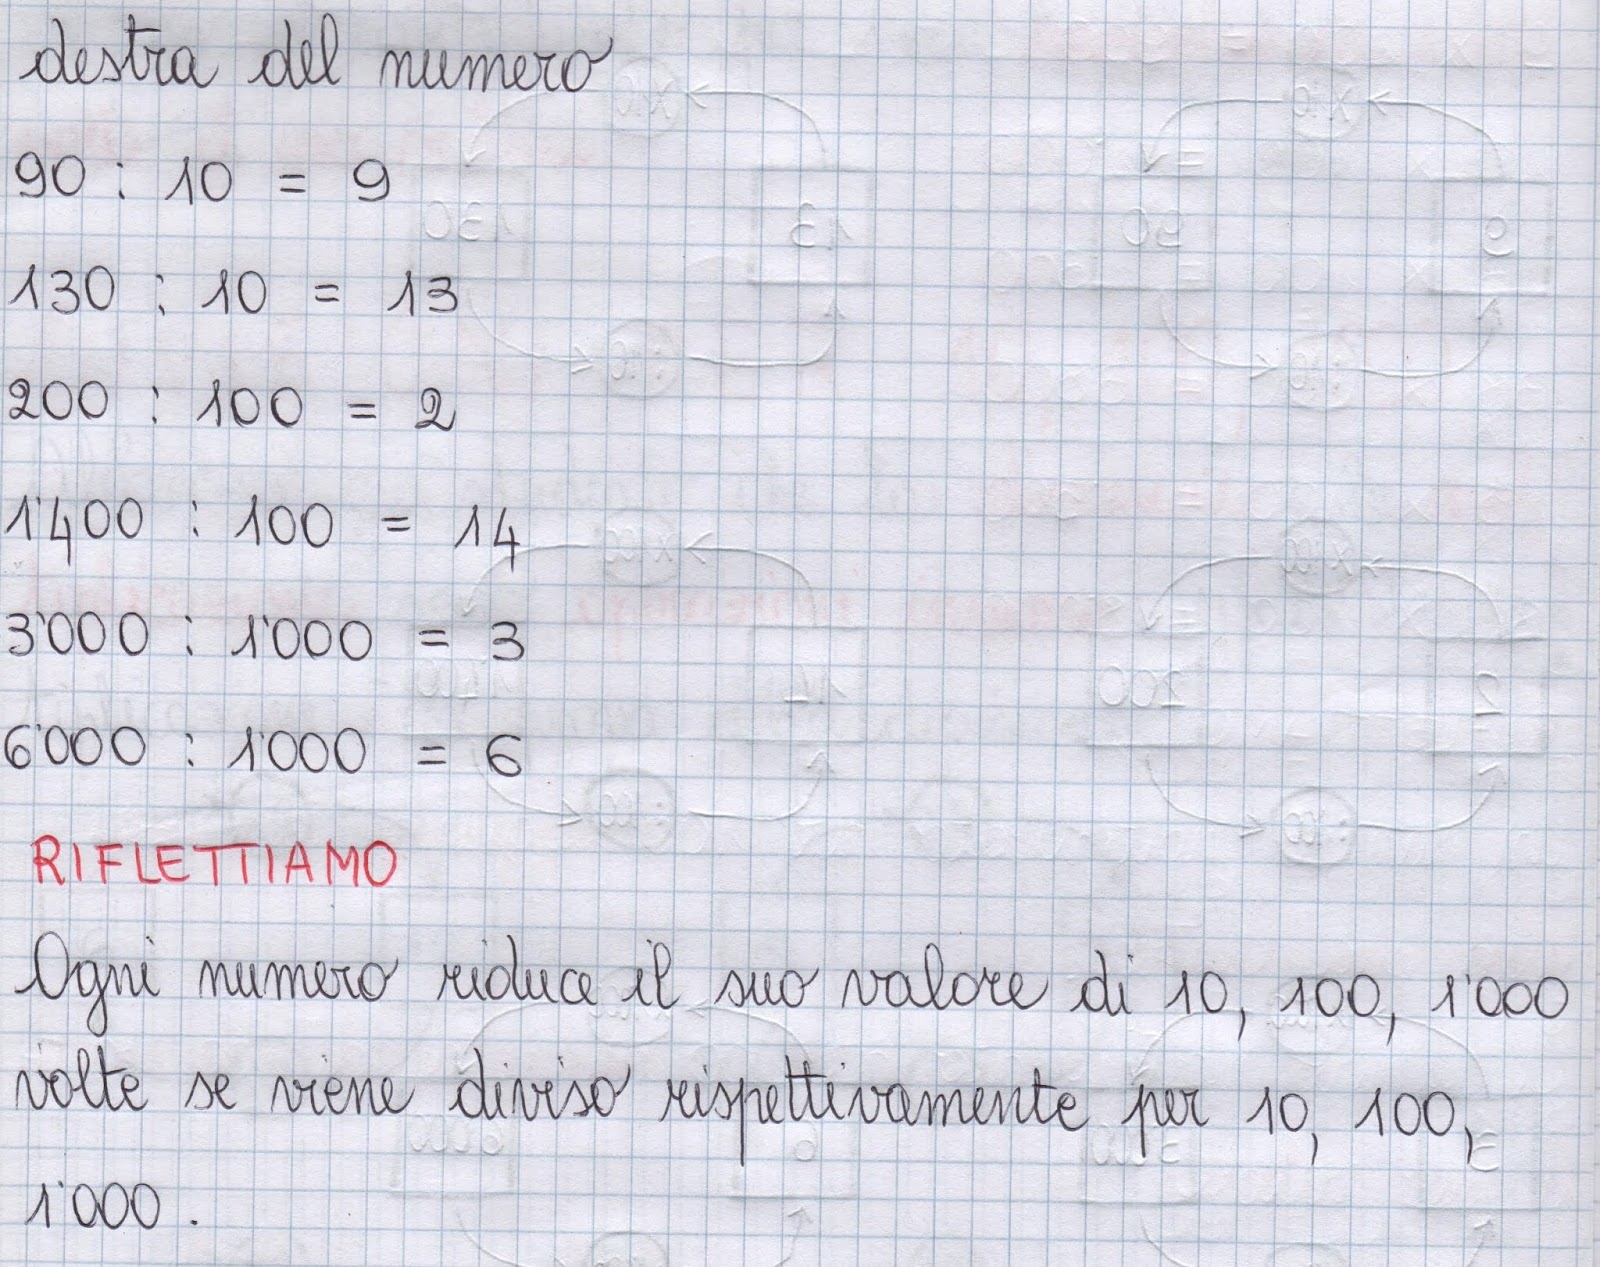 destra del numero
90 : 10 = 9
130 : 10 = 13
200 : 100 = 2
1'400 : 100 = 14
3'000 : 1'000 = 3
6'000 : 1'000 = 6
RIFLETTIAMO
Ogni numero riduce il suo valore di 10, 100, 1'000
volte se viene diviso rispettivamente per 10, 100,
1'000.